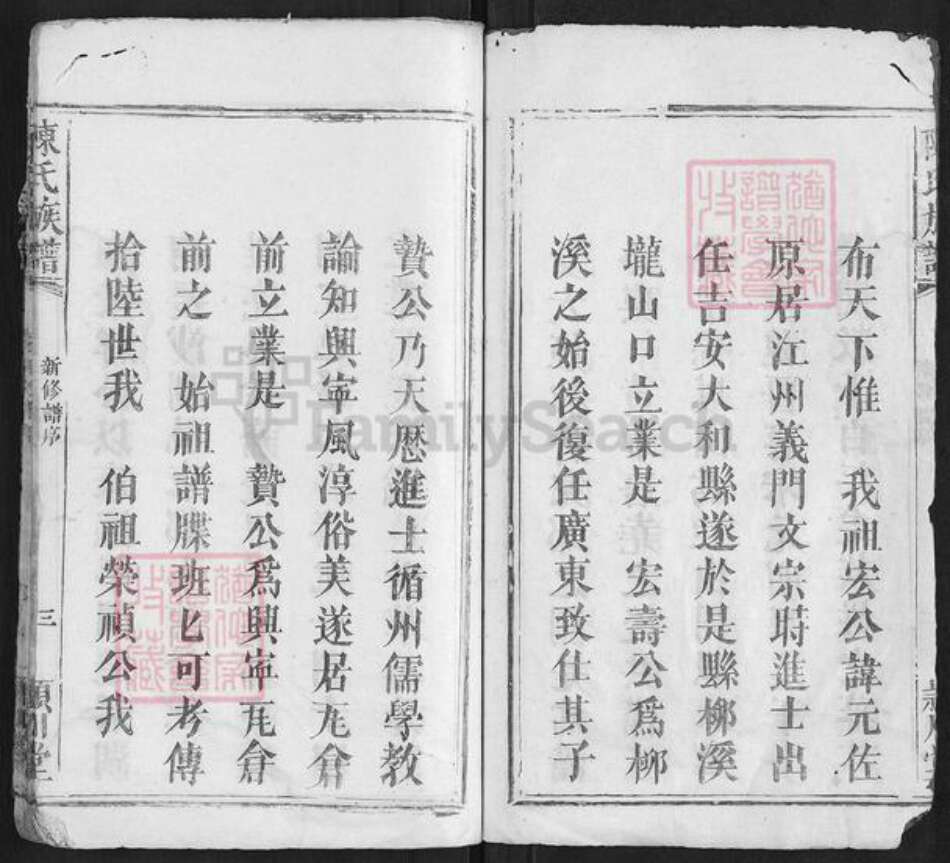 布天下惟 我祖宏公諱元佐
原居江州義門文宗時進士出
任吉安大和縣遂於是縣柳溪
壠山口立業是宏壽公爲柳
溪之始後復任廣東致仕其子
贄公乃天厯進士循州儒學教
諭知興寜風淳俗美遂居䧺倉
前立業是 贄公爲興寜䧺倉
前之 始祖譜牒班匕可考傳
拾陸世我 伯祖榮禎公我
陳氏族譜
新修譜序
三
潁川堂
FamilySearch